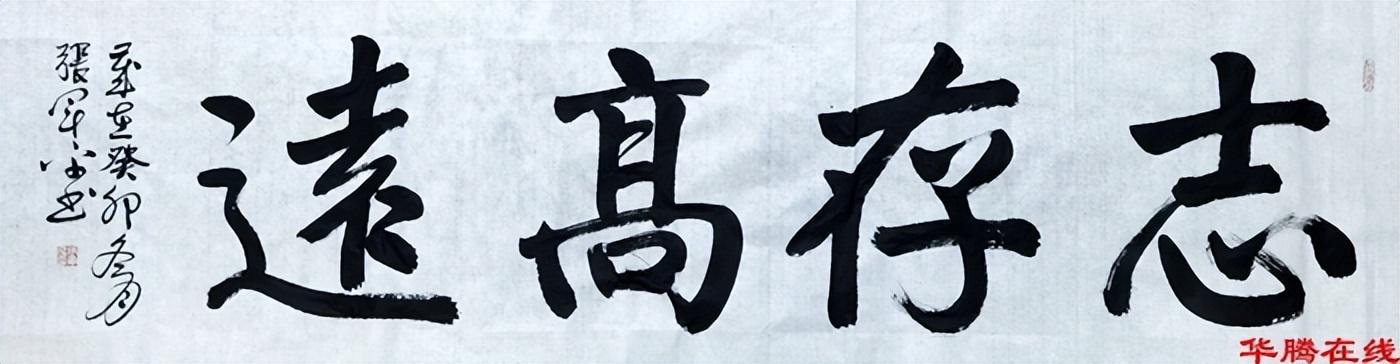 志存高遠
歲在癸卯冬月
張軍 书
华腾在线